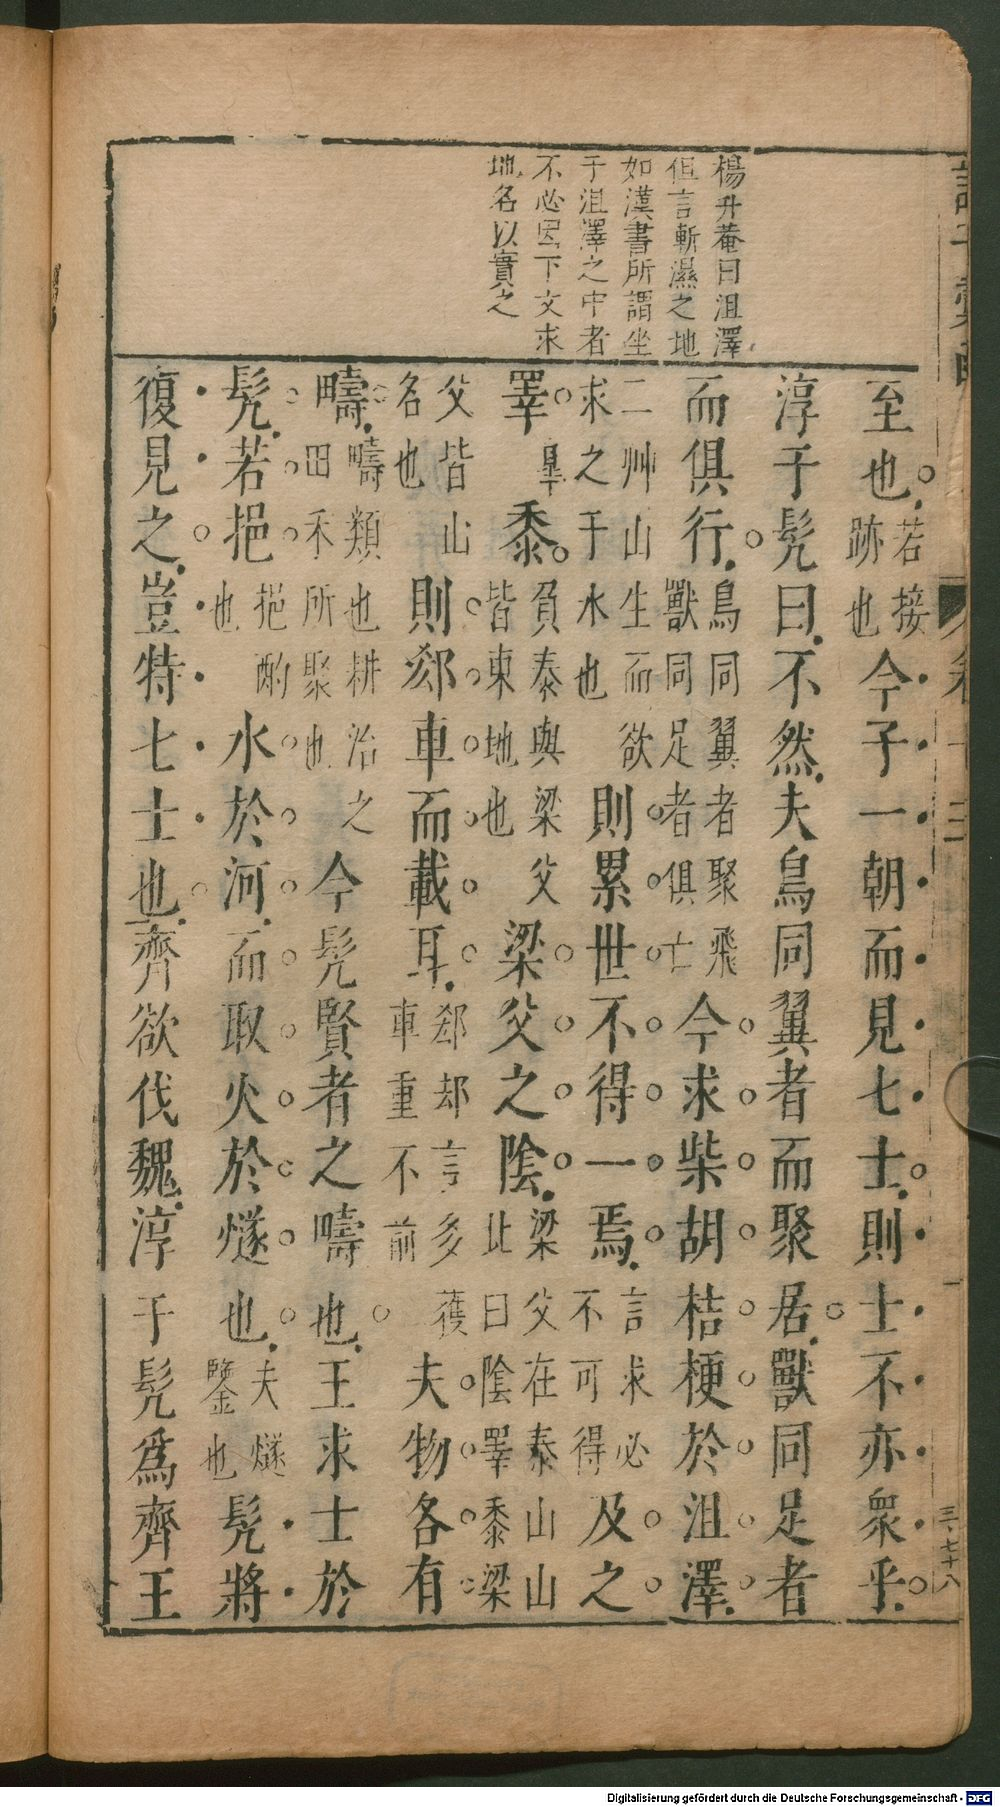 楊升菴曰沮澤
但言斬濕之地
如漢書所謂坐
于沮澤之中者
不必因下文求
地名以實之
至也若接跡也今子一朝而見七士則士不亦衆乎
淳于髡曰不然夫鳥同翼者而聚居獸同足者
而俱行鳥同翼者聚飛獸同足者俱亡今求柴胡桔梗於沮澤
二艸山生而欲求之于水也則累世不得一焉言求必不可得及之
睪皐黍負泰與梁父皆東地也梁父之陰梁父在泰山山北曰陰睪黍梁
父皆山名也則郄車而載耳郄却言多獲車重不前夫物各有
疇疇類也耕治之田禾所聚也今髡賢者之疇也王求士於
髡若挹挹酌也水於河而取火於燧也夫燧鑒也髡將
復見之豈特七士也齊欲伐魏淳于髡爲齊王
三、七十八
Digitalisierung gefördert durch die Deutsche Forschungsgemeinschaft - DFG